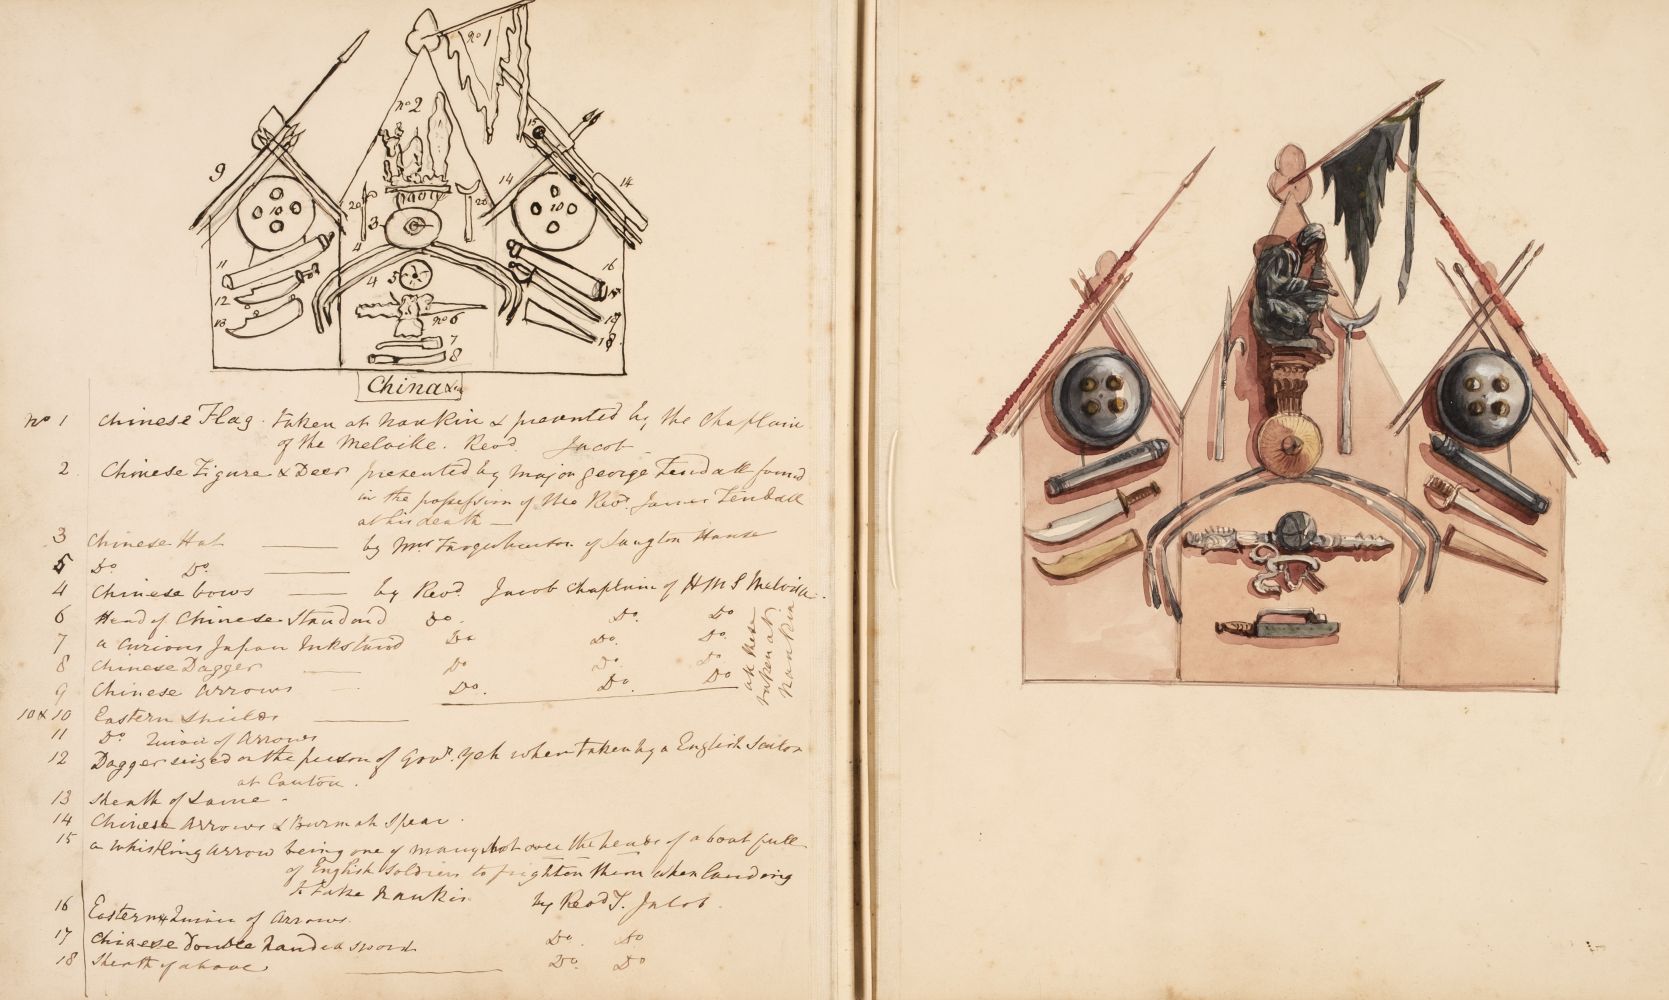 no 1
no 2
15
9
14
14
10
10
20
20
3
4
11
16
4
5
12
13
no 6
18
7
8
China &c
no 1 Chinese Flag. taken at Nankin & presented by the Chaplain
of the Melville. Revd. Jacob
2 Chinese Figure & Deer presented by Major George Tendall found
in the possession of the Revd. James Tendall
at his death —
3 Chinese Hat — by Mrs of Langton House
5 Do Do. —
4 Chinese bows — by Revd. Jacob Chaplain of HMS Melville.
6 Head of Chinese Standard Do. Do. Do
7 a curious Japan Inkstand Do Do. Do.
8 Chinese Dagger — Do Do. Do
9 Chinese Arrows Do. Do. Do
all these
taken at
Nankin
10 & 10 Eastern Shields —
11 Do Quiver of Arrows
12 Dagger seized on the person of Govr. Yeh when taken by a English Sailor
at Canton.
13 Sheath of Same.
14 Chinese Arrows & Burmah Spear.
15 a whistling arrow being one of many shot over the heads of a boat full
of English Soldiers to frighten them when landing
to take Nankin by Revd J. Jacob.
16 Eastern Quiver of Arrows.
17 Chinese double handed sword Do. Do.
18 Sheath of above — Do. Do